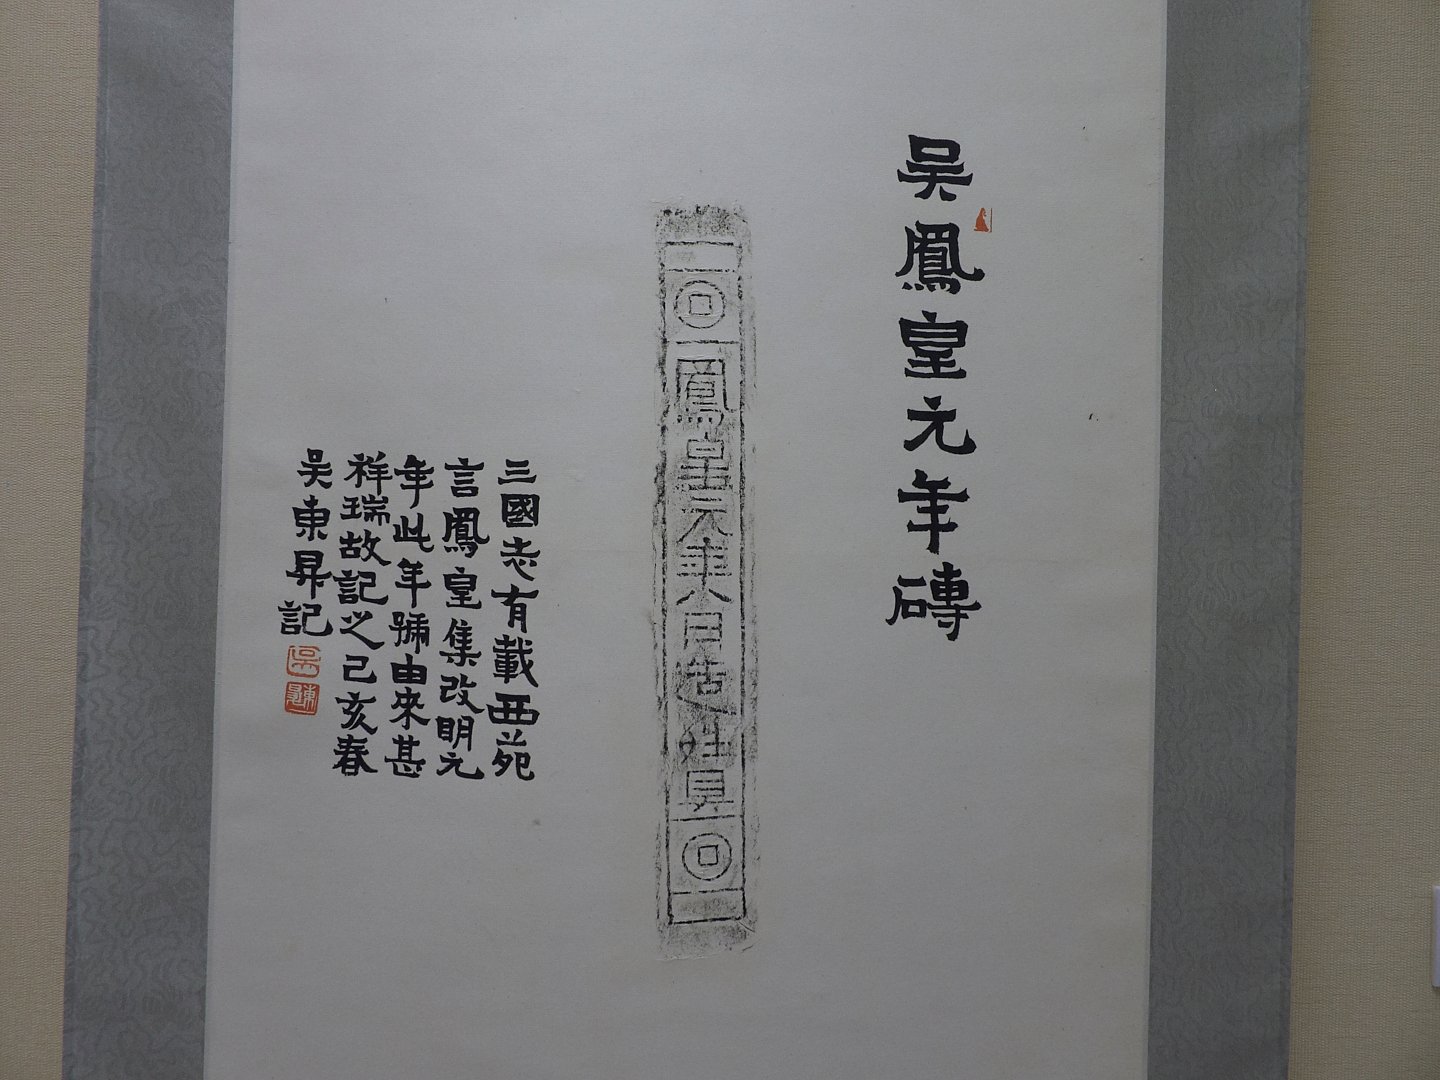 吳鳳皇元年磚
鳳皇元年八月造作吳
三國志有載西苑
言鳳皇集改明元
年此年號由來甚
祥瑞故記之己亥春
吳東昇記
吳
東昇